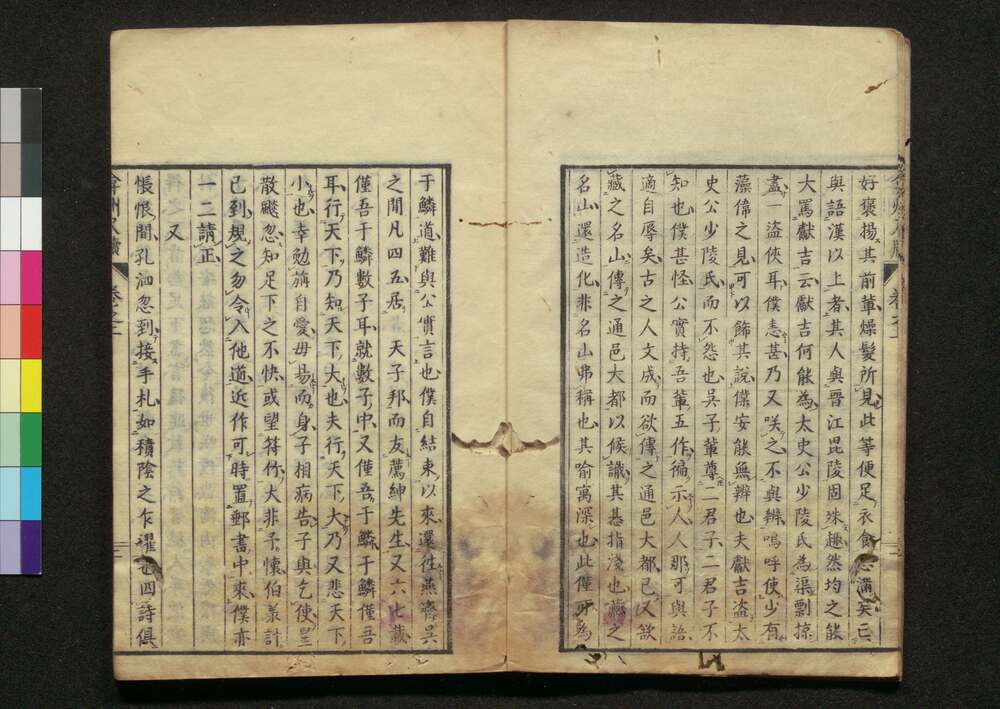 好褒揚其前輩燥髮所見此等便足衣食志滿矣亡
與語漢以上者其人與晉江毘陵固殊趣然均之能
大罵獻吉云獻吉何能為太史公少陵氏為渠剽掠
盡一盜俠耳僕恚甚乃又咲之不與辨嗚呼使少有
藻偉之見可以飾其說僕安能無辨也夫獻吉盜太
史公少陵氏而不怨也吳子輩尊二君子二君子不
知也僕甚怪公實持吾輩五作徧示人人那可與語
適自辱矣古之人文成而欲傳之通邑大都已又欲
藏之名山傳之通邑大都以候識其甚指淺也藏之
名山還造化非名山弗稱也其喻寓深也此僅可為
于鱗道難與公實言也僕自結束以來還往燕齊吳
之間凡四五居天子邦而友薦紳先生又六七載
僅吾于鱗數子耳就數子中又僅吾于鱗于鱗僅吾
耳行天下乃知天下大也夫行天下大乃又悲天下
小也幸勉旃自愛毋易而身子相病告子與乞使星
散飈忽知足下之不快或望符竹大非予懷伯承計
已到規之勿令入他道近作可時置郵書中來僕亦
一二請正
又
悵悵間孔泗忽到接手札如積陰之乍濯也四詩俱
卷之二